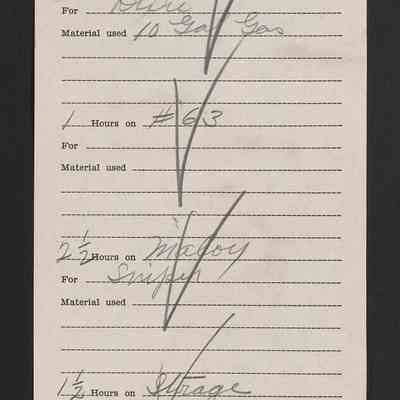 For
Material used 10 Gal Gas
1 Hours on #63
For
Material used
2½ Hours on Malloy
For Snipin
Material used
1½ Hours on Storage